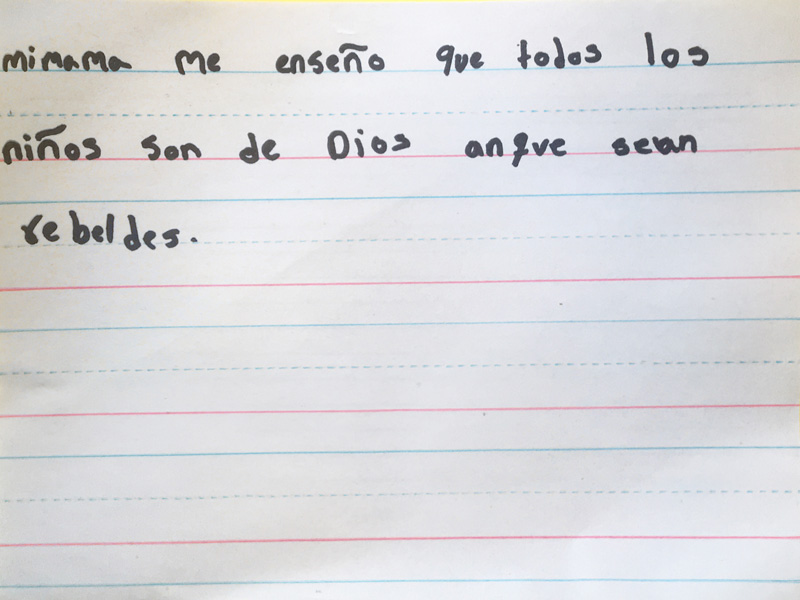 mimama me enseño que todos los
niños son de Dios anque sean
rebeldes.